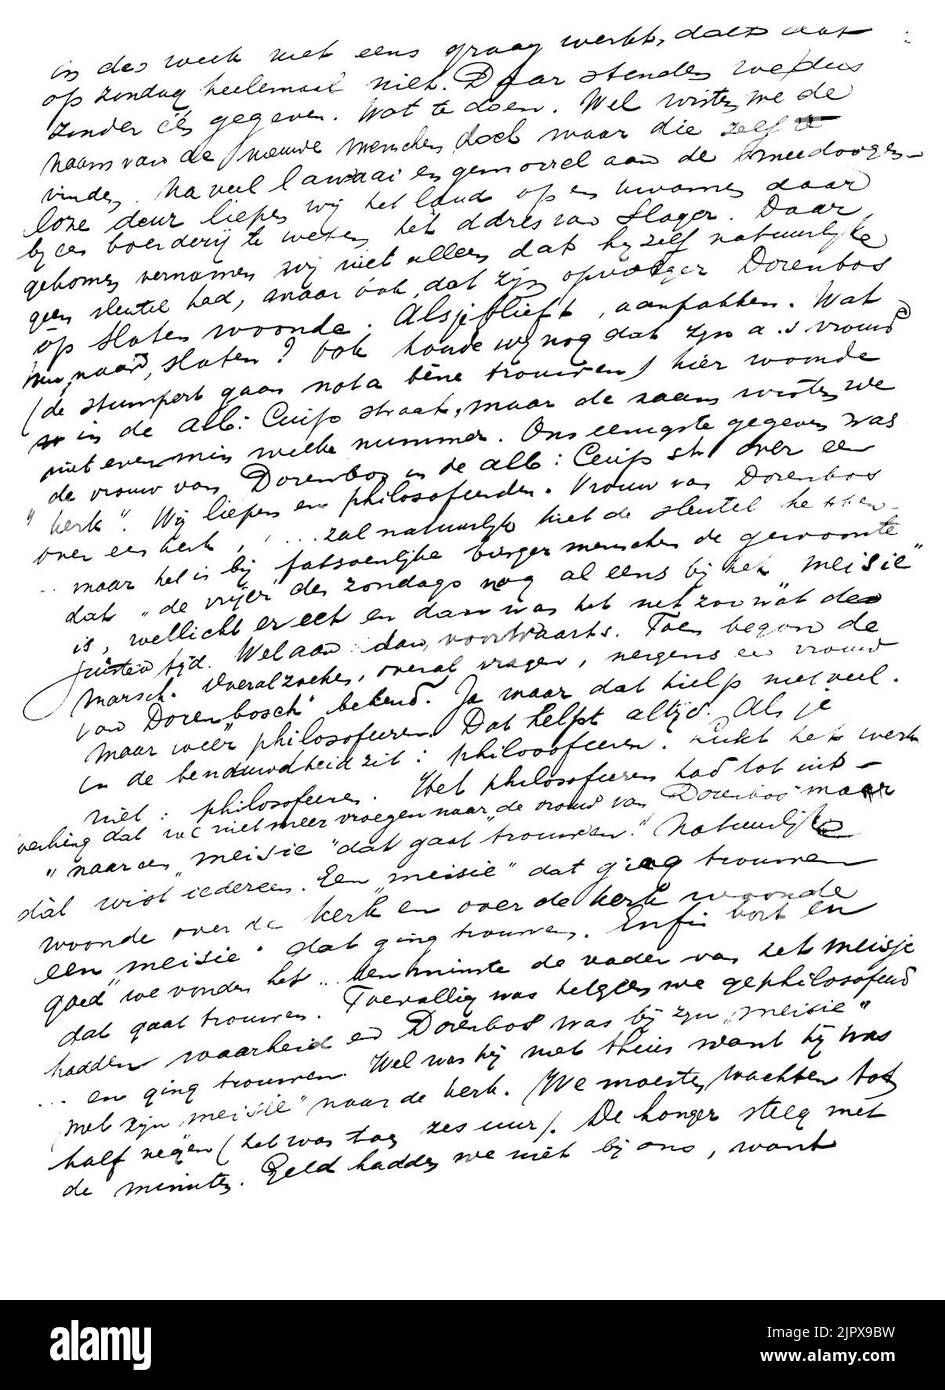 in des week niet eens graag werkt, doet dat
op zondag heelemaal niet. Daar stonden we dus
zonder één gegeven. Wat te doen. Wel wisten we de
naam van de nieuwe menschen doch waar die zelf te
vinden. Na veel lawaai en gemorrel aan de onmeedoogen-
loze deur liepen wij het land op en kwamen daar
bij een boerderij te weten het adres van Slager. Daar
gekomen vernamen wij niet alleen dat hij zelf natuurlijk
geen sleutel had, maar ook, dat zijn opvolger Dorenbos
op Sloten woonde. Alsjeblieft, aanpakken. Wat
nu, naar Sloten? Ook hoorde wij nog dat zijn a.s vrouw
(de stumpert gaan nota bène trouwen) hier woonde
in de Alb: Cuijp straat, maar de naam wisten we
niet evenmin welke nummer. Ons eenigste gegeven was
de vrouw van Dorenbos in de Alb: Cuijp str over een
"kerk". Wij liepen en philosofeerden. Vrouw van Dorenbos
over een kerk, ... zal natuurlijk niet de sleutel hebben
.. maar het is bij fatsoenlijke burger menschen de gewoonte
dat "de vrijer" des zondags nog al eens bij het "meisie"
is, wellicht er eet en dan was het net zoo wat de
juiste tijd. Welaan dan, voorwaarts. Toen begon de
marsch. Overal zoeken, overal vragen, nergens een vrouw
van Dorenbosch bekend. Ja maar dat hielp niet veel.
Maar weer philosofeeren. Dat helpt altijd. Als je
in de benauwdheid zit: philosofeeren. Lukt het werk
niet: philosofeeren. Het philosofeeren had tot uit-
werking dat we niet meer vroegen naar de vrouw van Dorenbos maar
"naar een meisie" dat gaat "trouwen." Natuurlijk
dat wist iedereen. Een "meisie" dat ging trouwen
woonde over de kerk en over de kerk woonde
een "meisie" dat ging trouwen. Enfin kort en
goed we vonden het .. ten minste de vader van het meisje
dat gaat trouwen. Toevallig was hetgeen we gephilosofeerd
hadden waarheid en Dorenbos was bij zijn "meisie"
... en ging trouwen. Wel was hij niet thuis want hij was
met zijn "meisie" naar de kerk. We moesten wachten tot
half negen (het was toen zes uur). De honger steeg met
de minuten. Geld hadden we niet bij ons, want
alamy
Image ID: 2JPX9BW
www.alamy.com